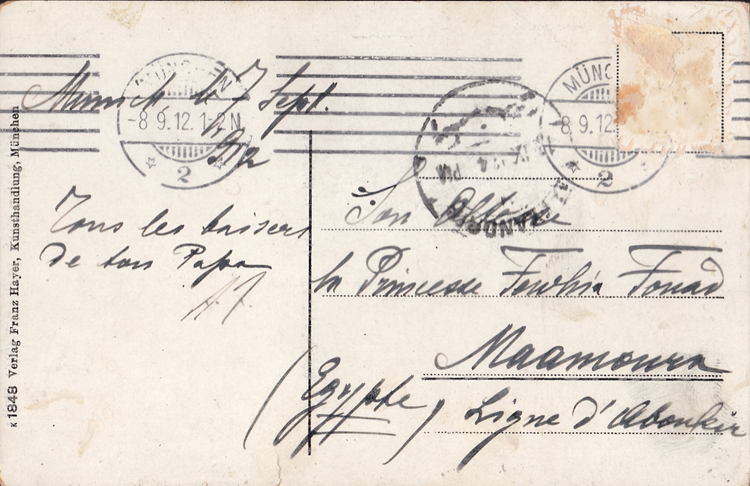 Munich le 7 Sept.
1912
Tous les baisers
de ton Papa
Son Altesse
la Princesse Fewkia Fouad
Maamoura
(Egypte) Ligne d'Aboukir
MÜNCHEN
-8.9.12.1-2N.
2
MÜNC
8.9.12
2
ALEXANDRI
K 1848 Verlag Franz Hayer, Kunsthandlung, München